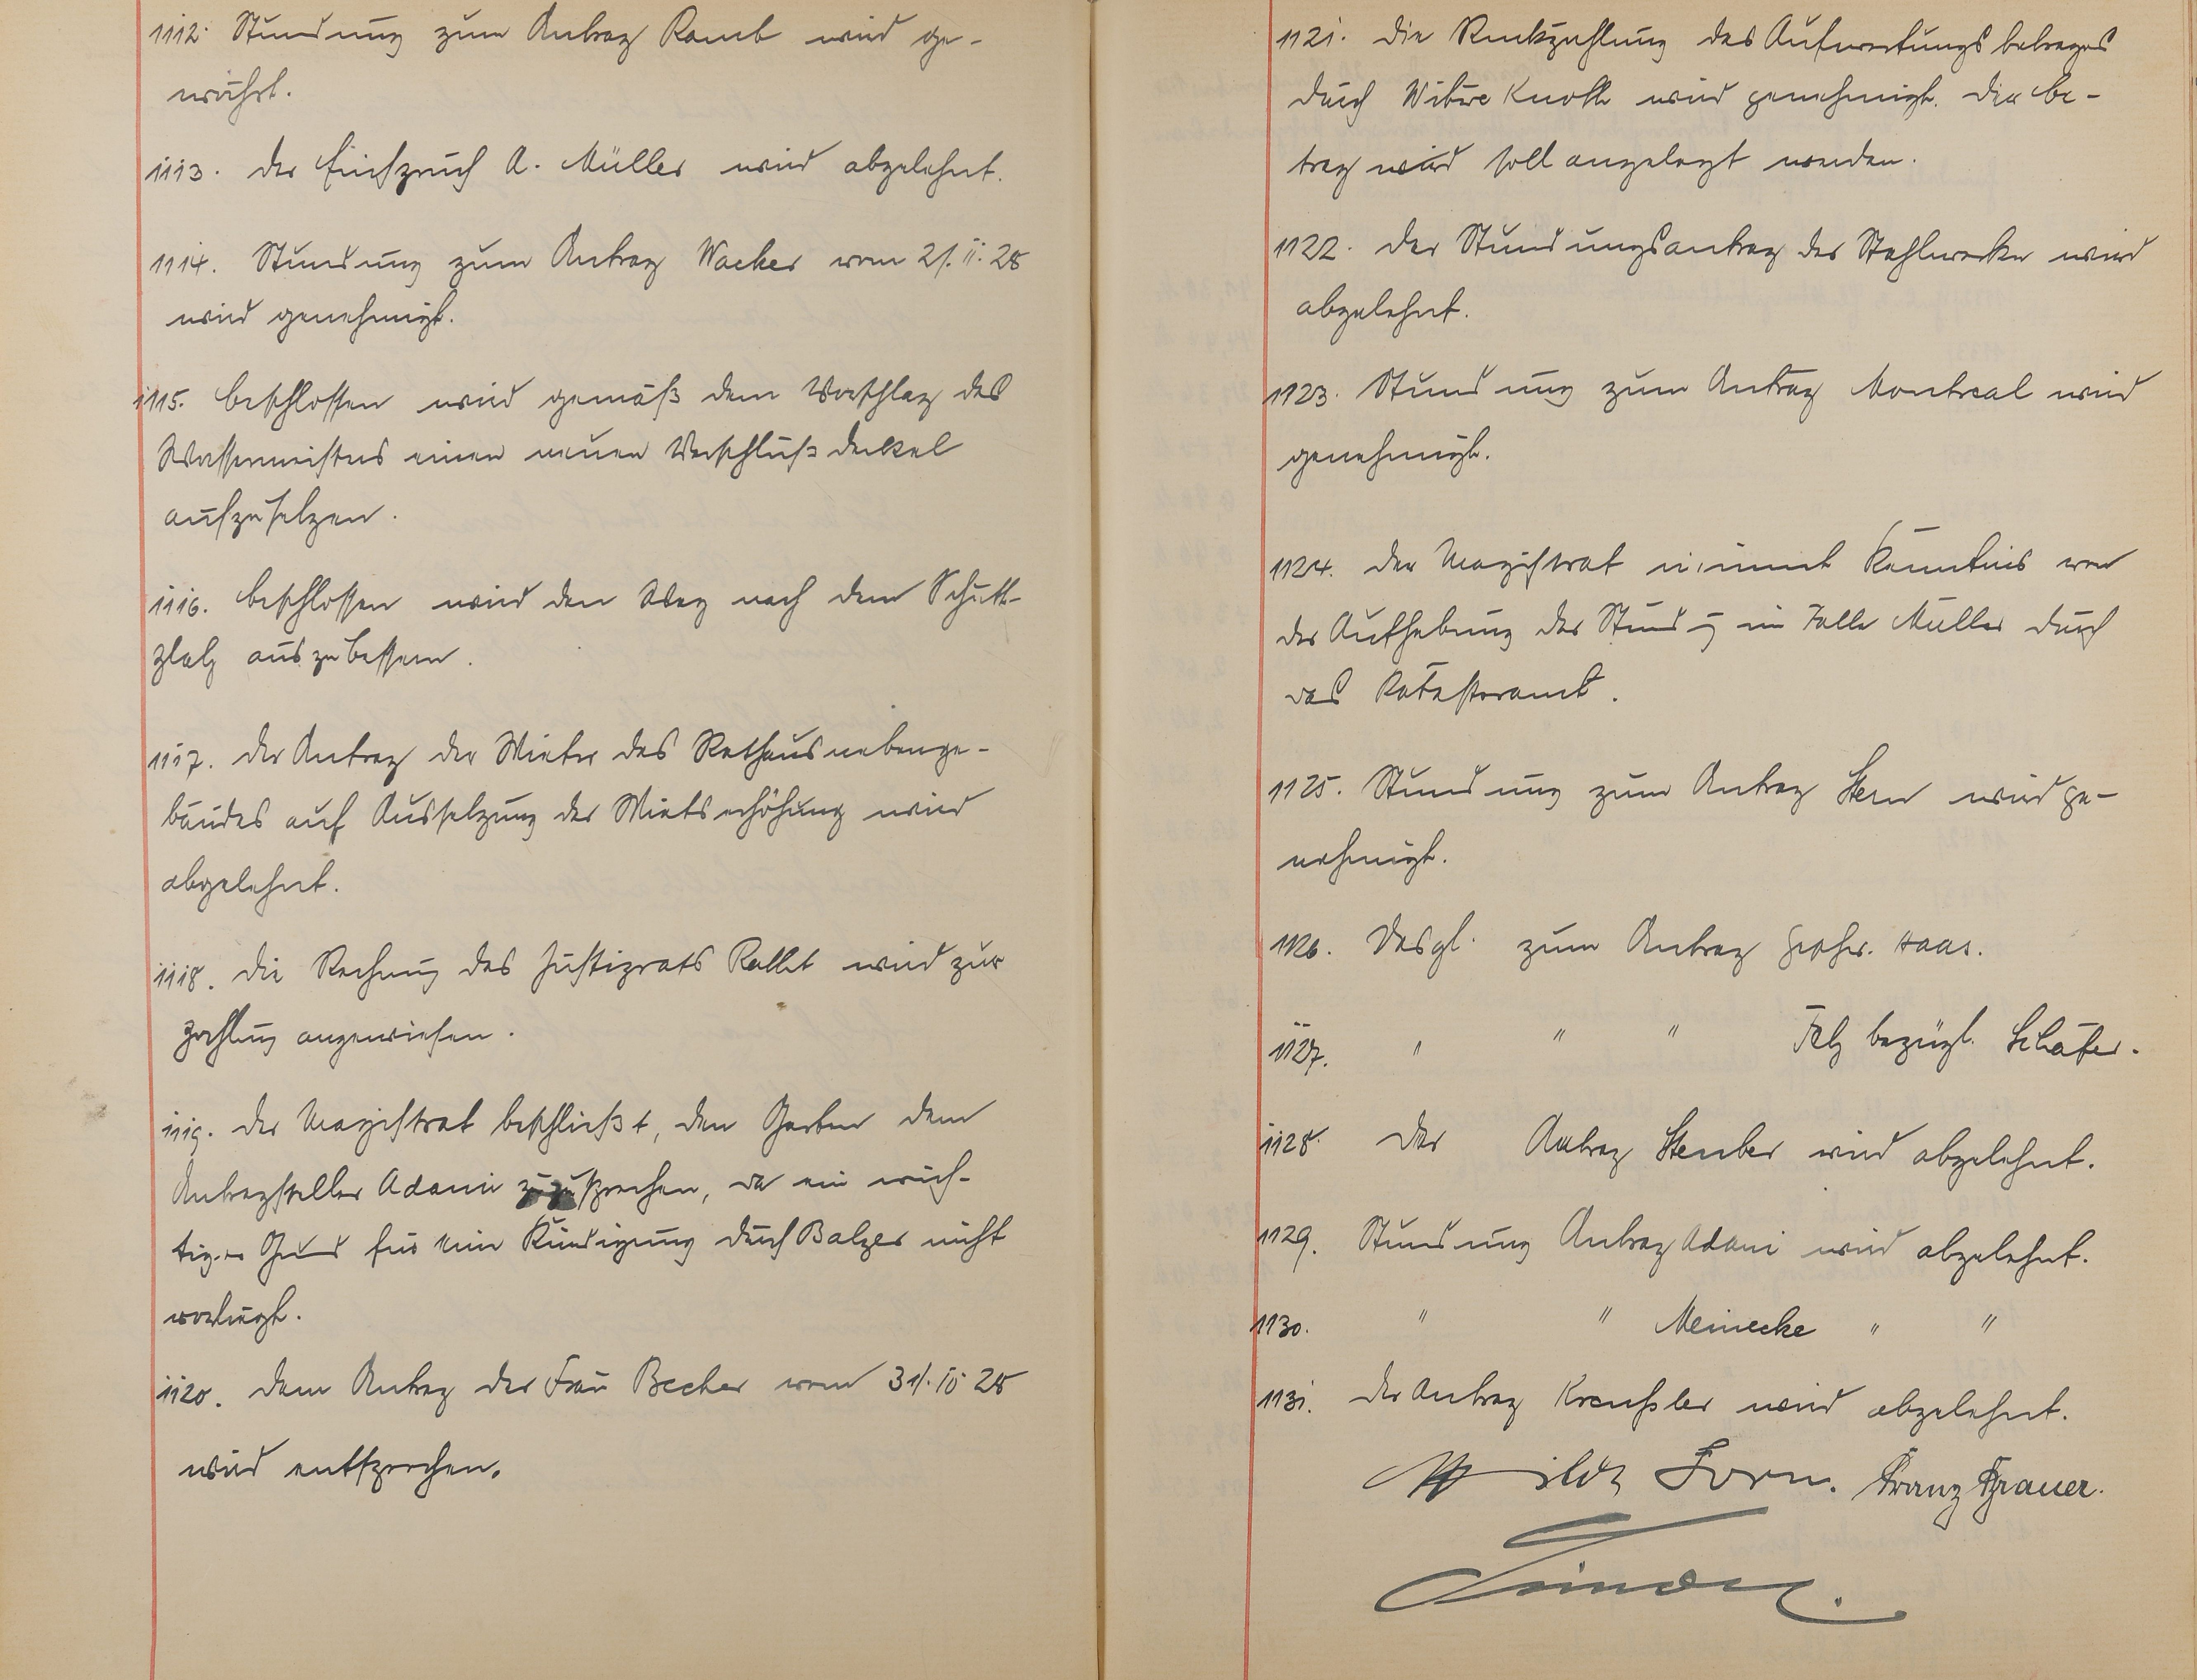 1112. Stundung zum Antrag Ramb wird ge-
währt.
1113. Der Einspruch A. Müller wird abgelehnt.
1114. Stundung zum Antrag Wacker vom 21.II.28
wird genehmigt.
1115. Beschlossen wird gemäß dem Vorschlag des
Wassermeisters einen neuen Verschlußdeckel
aufzusetzen.
1116. Beschlossen wird den Weg nach dem Schutt-
platz auszubessern.
1117. Der Antrag der Mieter des Rathausnebenge-
bäudes auf Aussetzung der Mietserhöhung wird
abgelehnt.
1118. Die Rechnung des Justizrats wird zur
Zahlung angewiesen.
1119. Der Magistrat beschließt, den Garten dem
Antragsteller Adami zuzusprechen, da ein wich-
tiger Grund für eine Kündigung durch Balzer nicht
vorliegt.
1120. Dem Antrag der Frau Becker vom 28
wird entsprochen.
1121. Die Rückzahlung des Aufwertungsbetrages
durch Witwe Knoth wird genehmigt. Der Be-
trag wird soll angelegt werden.
1122. Der Stundungsantrag der Stahlwerke wird
abgelehnt.
1123. Stundung zum Antrag Montreal wird
genehmigt.
1124. Der Magistrat nimmt Kenntnis von
der Aufhebung der Stundg im Falle Müller durch
das Katasteramt.
1125. Stundung zum Antrag Stern wird ge-
nehmigt.
1126. Desgl. zum Antrag Haas.
1127. " " " Felz bezügl. Schäfer.
1128. Der Antrag Steuber wird abgelehnt.
1129. Stundung Antrag Adami wird abgelehnt.
1130. " " Meinecke " "
1131. Der Antrag Kreußler wird abgelehnt.
Franz Grauer.